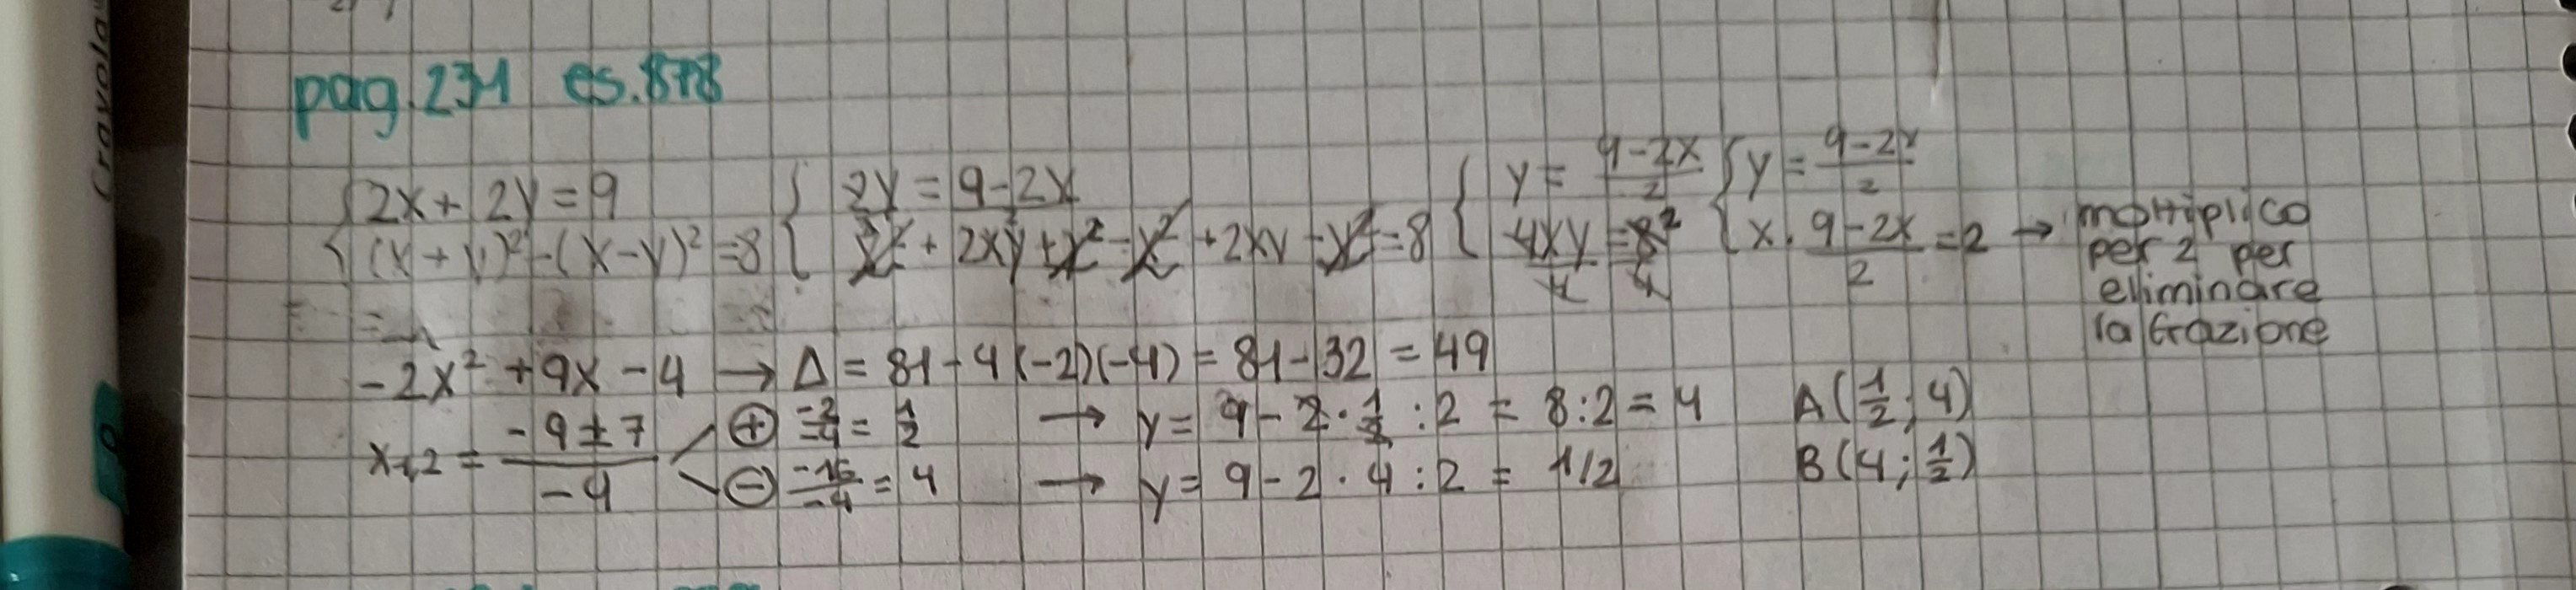 Crayola
pag.231 es.878
{2x + 2y = 9 { 2y = 9-2x { y = (9-2x)/2 { y = (9-2x)/2
{(x+y)²-(x-y)²=8 { x² + 2xy + y² - x² + 2xy - y² = 8 { 4xy/4 = 8²/4 { x · (9-2x)/2 = 2 → moltiplico
per 2 per
eliminare
la frazione
-2x² + 9x - 4 → Δ = 81 - 4(-2)(-4) = 81 - 32 = 49
x1,2 = (-9 ± 7)/-4 ⊕ -2/-4 = 1/2 → y = 9 - 2 · 1/2 : 2 = 8:2 = 4 A(1/2; 4)
⊖ -16/-4 = 4 → y = 9 - 2 · 4 : 2 = 1/2 B(4; 1/2)